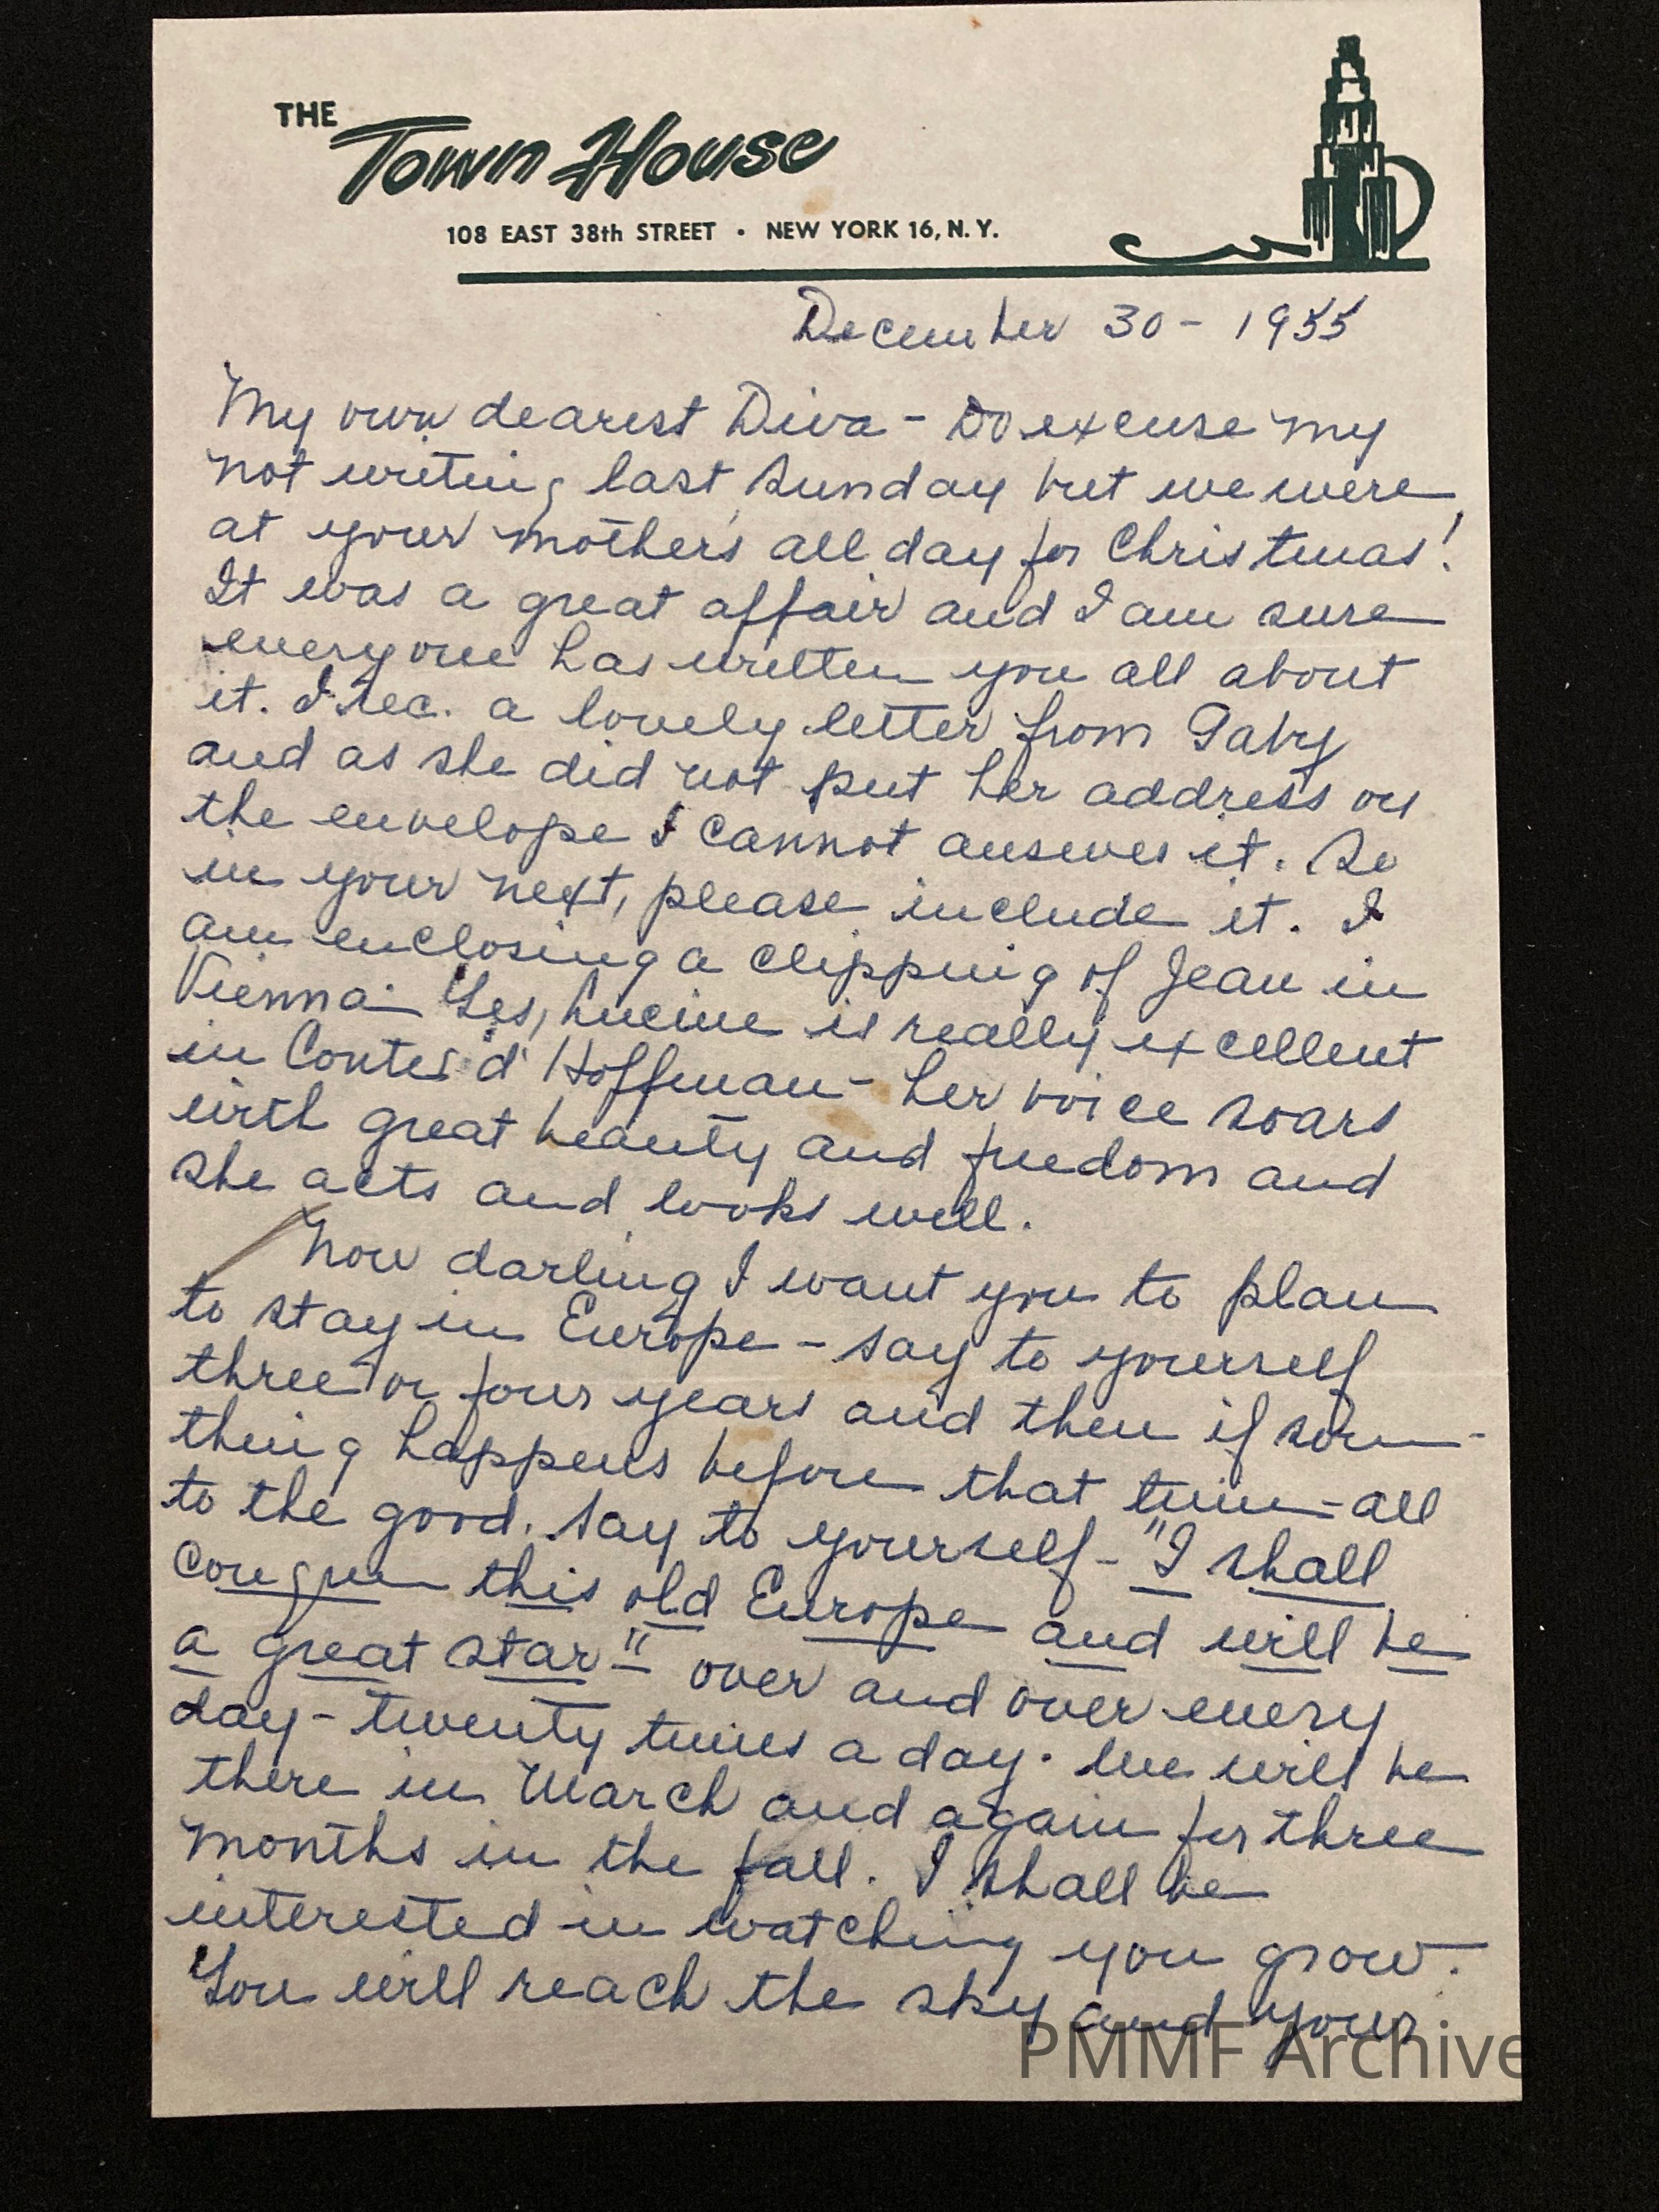 THE
Town House
108 EAST 38th STREET • NEW YORK 16, N. Y.
December 30 - 1955
My own dearest Diva - Do excuse my
not writing last Sunday but we were
at your mother's all day for Christmas!
It was a great affair and I am sure
everyone has written you all about
it. I rec. a lovely letter from Gaby
and as she did not put her address on
the envelope I cannot answer it. So
in your next, please include it. I
am enclosing a clipping of Jean in
Vienna - Yes, Lucine is really excellent
in Contes d' Hoffman - her voice soars
with great beauty and freedom and
she acts and looks well.
Now darling I want you to plan
to stay in Europe - say to yourself
three or four years and then if some-
thing happens before that time - all
to the good. Say to yourself - "I shall
conquer this old Europe and will be
a great star" over and over every
day - twenty times a day. We will be
there in March and again for three
months in the fall. I shall be
interested in watching you grow.
You will reach the sky and your
PMMF Archive